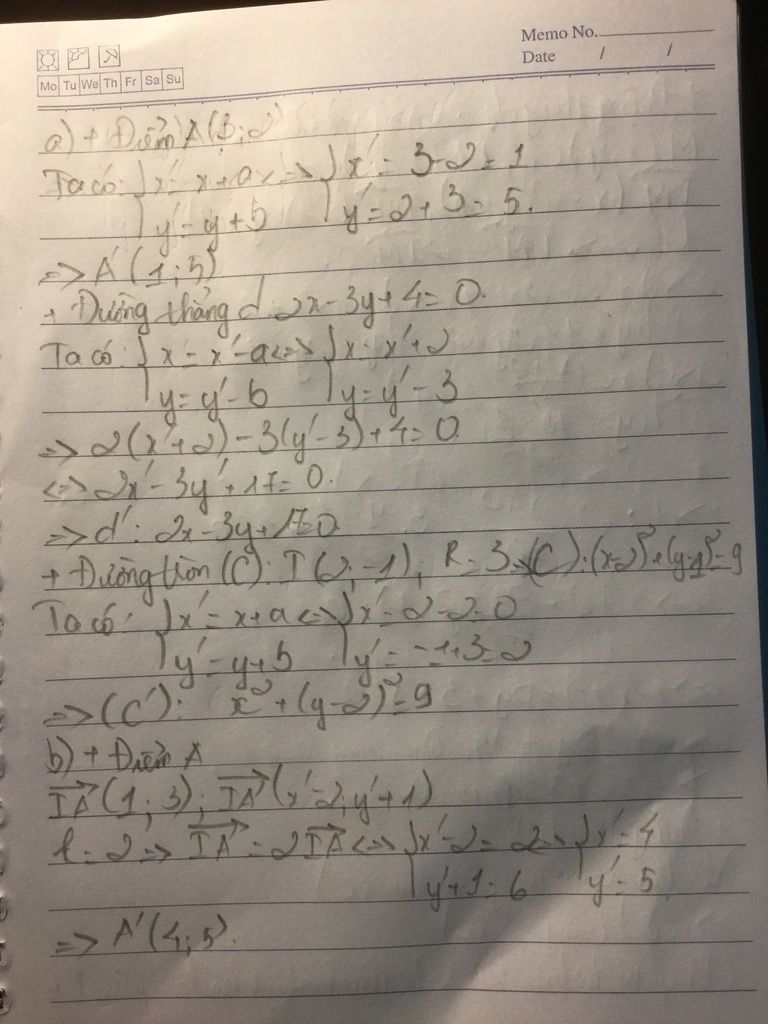 Memo No.
Date / /
Mo Tu We Th Fr Sa Su
a) + Điểm A(3; 2)
Ta có: { x' = x + a <=> { x' = 3-2 = 1
y' = y + b y' = 2 + 3 = 5.
=> A' (1; 5)
+ Đường thẳng d: 2x - 3y + 4 = 0.
Ta có: { x = x' - a <=> { x = x' + 2
y = y' - b y = y' - 3
=> 2(x' + 2) - 3(y' - 3) + 4 = 0
<=> 2x' - 3y' + 17 = 0.
=> d': 2x - 3y + 17 = 0
+ Đường tròn (C): I (2; -1), R = 3 => (C): (x-2)² + (y-1)² = 9
Ta có: { x' = x + a <=> { x' = 2 - 2 = 0
y' = y + b y' = -1 + 3 = 2
=> (C'): x² + (y - 2)² = 9
b) + Điểm A
IA (1; 3); IA' (x' - 2; y' + 1)
k = 2 => IA' = 2IA <=> { x' - 2 = 2 => { x' = 4
y' + 1 = 6 y' = 5
=> A' (4; 5).